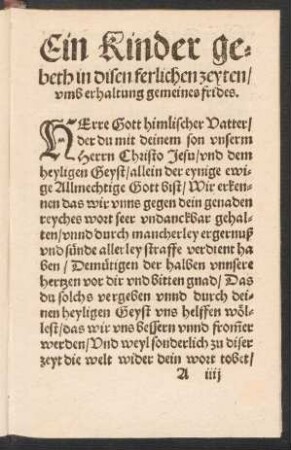 Ein Kinder ge-
beth in disen ferlichen zeyten/
vmb erhaltung gemeines frides.
HErre Gott himlischer Vatter/
der du mit deinem son vnserm
Herrn Christo Jesu/vnd dem
heyligen Geyst/allein der eynige ewi-
ge Allmechtige Gott bist/Wir erken-
nen das wir vnns gegen dein genaden
reyches wort seer vndanckbar gehal-
ten/vnnd durch mancherley ergernuß
vnd sünde allerley straffe verdient ha
ben/Demütigen der halben vnnsere
hertzen vor dir vnd bitten gnad/Das
du solchs vergeben vnnd durch dei-
nen heyligen Geyst vns helffen wöl-
lest/das wir vns bessern vnnd frommer
werden/Vnd weyl sonderlich zu diser
zeyt die welt wider dein wort tobet/
A iiij